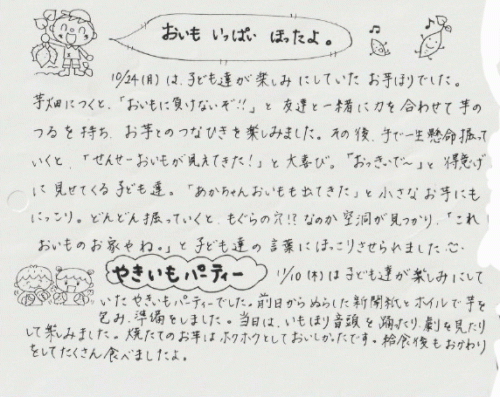 おいも いっぱい ほったよ。
10/24(月)は、子ども達が楽しみにしていたお芋ほりでした。
芋畑につくと、「おいもに負けないぞ!!」と友達と一緒に力を合わせて芋の
つるを持ち、お芋とのつなひきを楽しみました。その後、手で一生懸命掘って
いくと、「せんせーおいもが見えてきた!」と大喜び。「おっきいで〜」と得意げ
に見せてくる子ども達。「あかちゃんおいもも出てきた」と小さなお芋にも
にっこり。どんどん掘っていくと、もぐらの穴!?なのか空洞が見つかり、「これ
おいものお家やね。」と子ども達の言葉にほっこりさせられました
やきいもパーティー
11/10(木)は子ども達が楽しみにして
いたやきいもパーティーでした。前日からぬらした新聞紙とホイルで芋を
包み、準備をしました。当日は、いもほり音頭を踊ったり、劇を見たり
して楽しみました。焼たてのお芋はホクホクとしておいしかったです。給食後もおかわり
をしてたくさん食べましたよ。